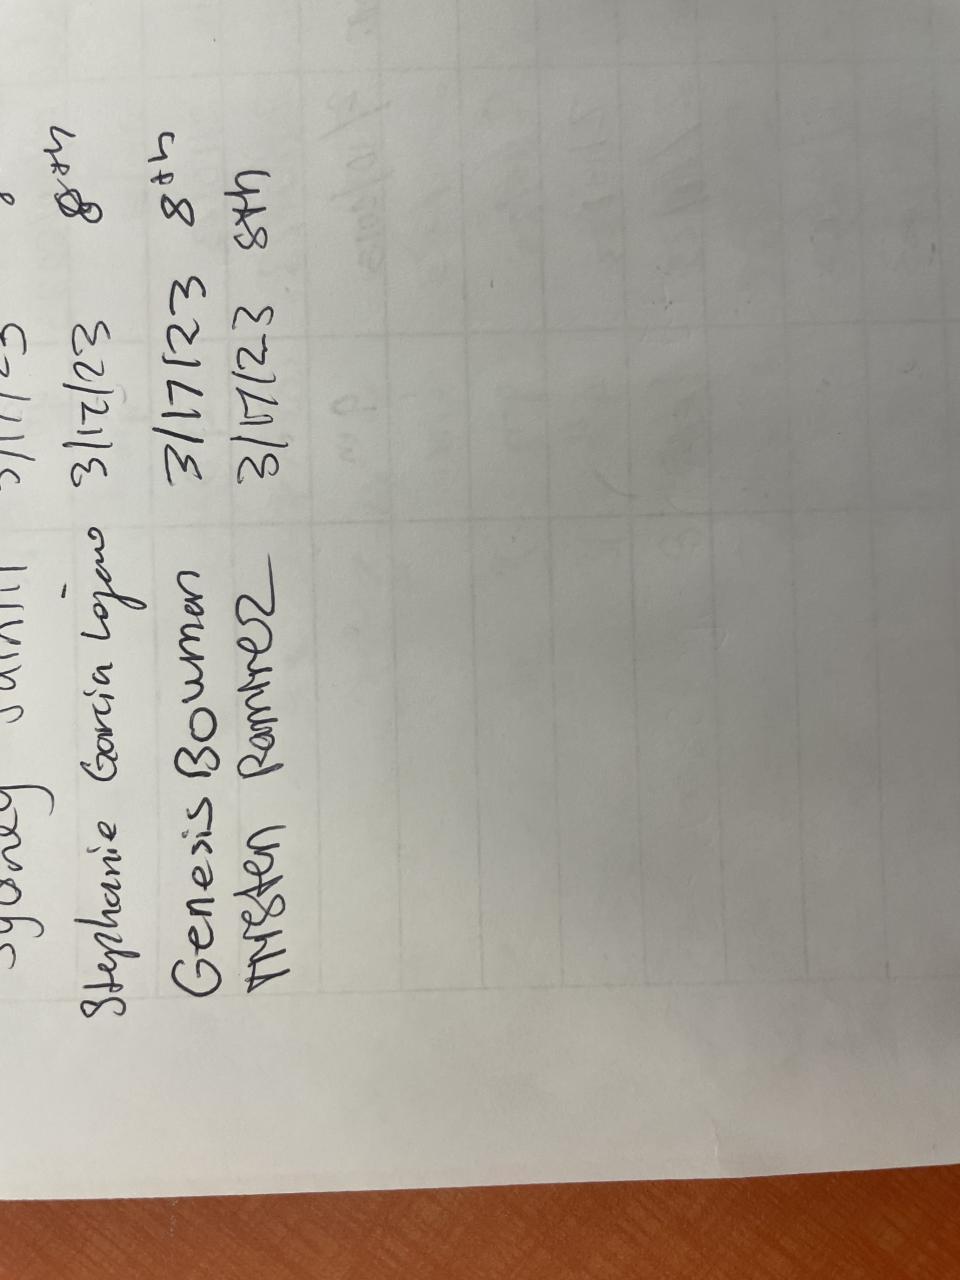 Sydney 3/17/23
Stephanie Garcia Lojano 3/17/23 8th
Genesis Bowman 3/17/23 8th
Tristen Ramirez 3/17/23 8th